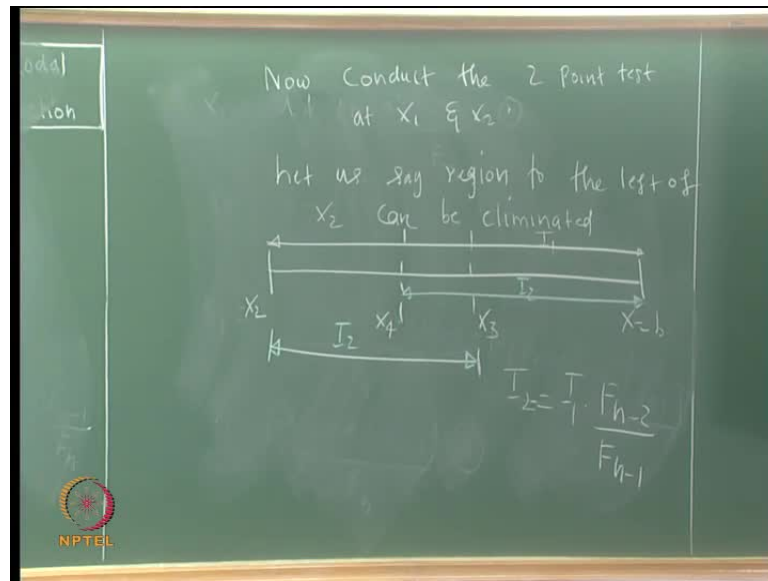 odal
tion
Now Conduct the 2 Point test
at X1 & X2
Let us say region to the left of
X2 Can be eliminated
I1
I2
X2 X4 X3 X=b
I2
I2 = I1 · Fn-2
Fn-1
NPTEL